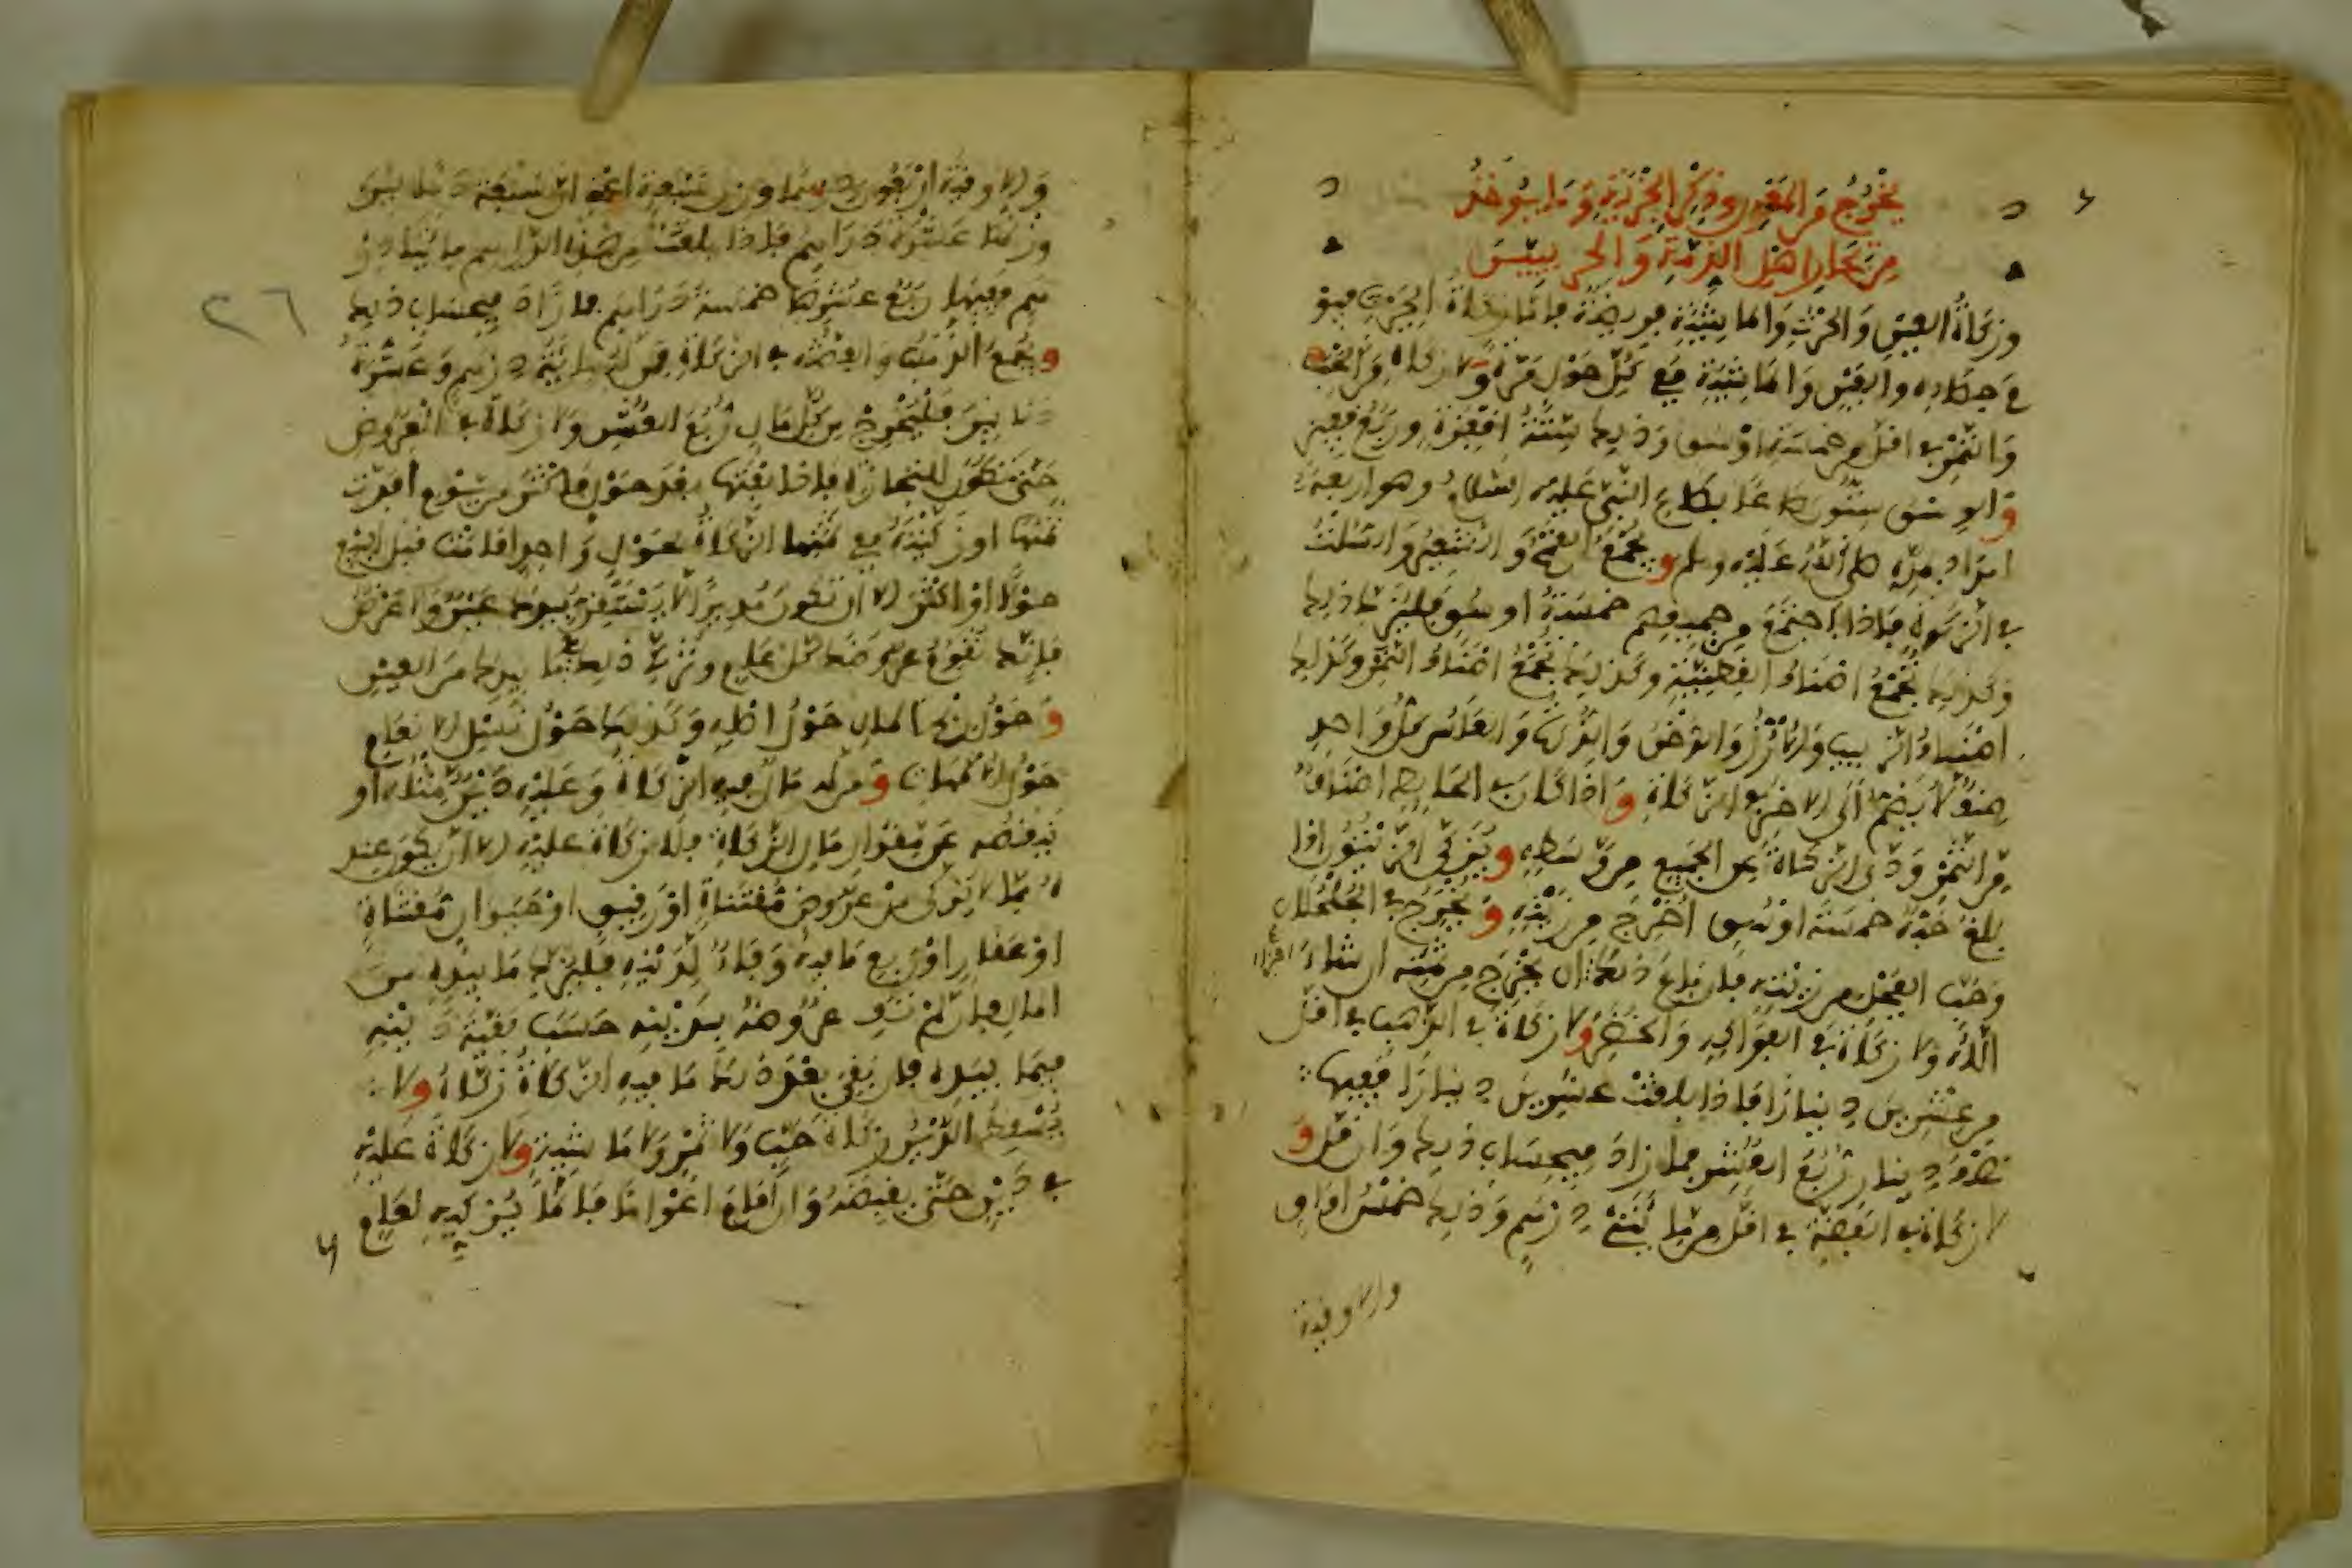 يخرج من المعدن وذكر الجزية وما يوخذ
من تجار اهل الذمة والحربيين
وزكاة العين والحرث والماشية فريضة فاما زكاة الحرث فيو
م حصاده والعين والماشية ففي كل حول مرة ولا زكاة من الحب
والتمر في اقل من خمسة اوسق وذلك ستة اقفزة وربع قفيز
والوسق ستون صاعا بصاع النبي عليه السلام وهو اربعة
امداد بمده صلى الله عليه وسلم ويجمع القمح والشعير والسلت
في الزكوة فاذا اجتمع من جميعهم خمسة اوسق فليزك ذلك
وكذلك تجمع اصناف القطنية وكذلك تجمع اصناف التمر وكذلك
اصناف الزبيب والارز والدخن والذرة والعلس كل واحد
صنف لا يضم الى الاخر في الزكاة واذا كان في الحايط اصناف
من التمر ودى الزكاة عن الجميع من وسطه ويزكى الزيتون اذا
بلغ حبه خمسة اوسق اخرج من زيته ويخرج من الجلجلان
وحب الفجل من زيته فان باع ذلك ان يخرج من ثمنه ان شاء
الله ولا زكاة في الفواكه والخضر ولا زكاة في الذهب في اقل
من عشرين دينارا فاذا بلغت عشرين دينارا ففيها
نصف دينار ربع العشر فما زاد فبحساب ذلك وان قل و
لا زكاة في الفضة في اقل من مائتي درهم وذلك خمس اواق
والاوقية
والاوقية اربعون درهما وزن سبعة اعني ان سبعة دنانير
وزنها عشرة دراهم فاذا بلغت من هذه الدراهم مايتا در
هم ففيها ربع عشرها خمسة دراهم فما زاد فبحساب ذلك
ويجمع الذهب والفضة في الزكاة فمن له مايتة درهم وعشرة
دنانير فليخرج من كل مال ربع العشر ولا زكاة في العروض
حتى تكون للتجارة فاذا بعتها بعد حول فاكثر من يوم افدت
ثمنها او زكيته ففي ثمنها الزكاة لحول واحد اقامت قبل البيع
حولا او اكثر الا ان تكون مديرا لا يستقر بيدك عين ولا عرض
فانك تقوم عروضك كل عام وتزكي ذلك مع ما بيدك من العين
وحول ربح المال حول اصله وكذلك حول نسل الانعام
حول الامهات ومن له مال فيه الزكاة وعليه دين مثله او
ينقصه عن مقدار مال الزكاة فلا زكاة عليه الا ان يكون عند
ه مما لا يزكى من عروض مقتناة او رقيق او حيوان مقتناة
او عقار او ربع ما فيه وفاء لدينه فليزك ما بيده من
المال فان لم تف عروضه بدينه حسب بقية دينه
فيما بيده فان بقي بعد ذلك ما فيه الزكاة زكاه ولا
يسقط الدين زكاة حب ولا تمر ولا ماشية ولا زكاة عليه
في دين حتى يقبضه وان اقام اعواما فانما يزكيه لعام
٢٦